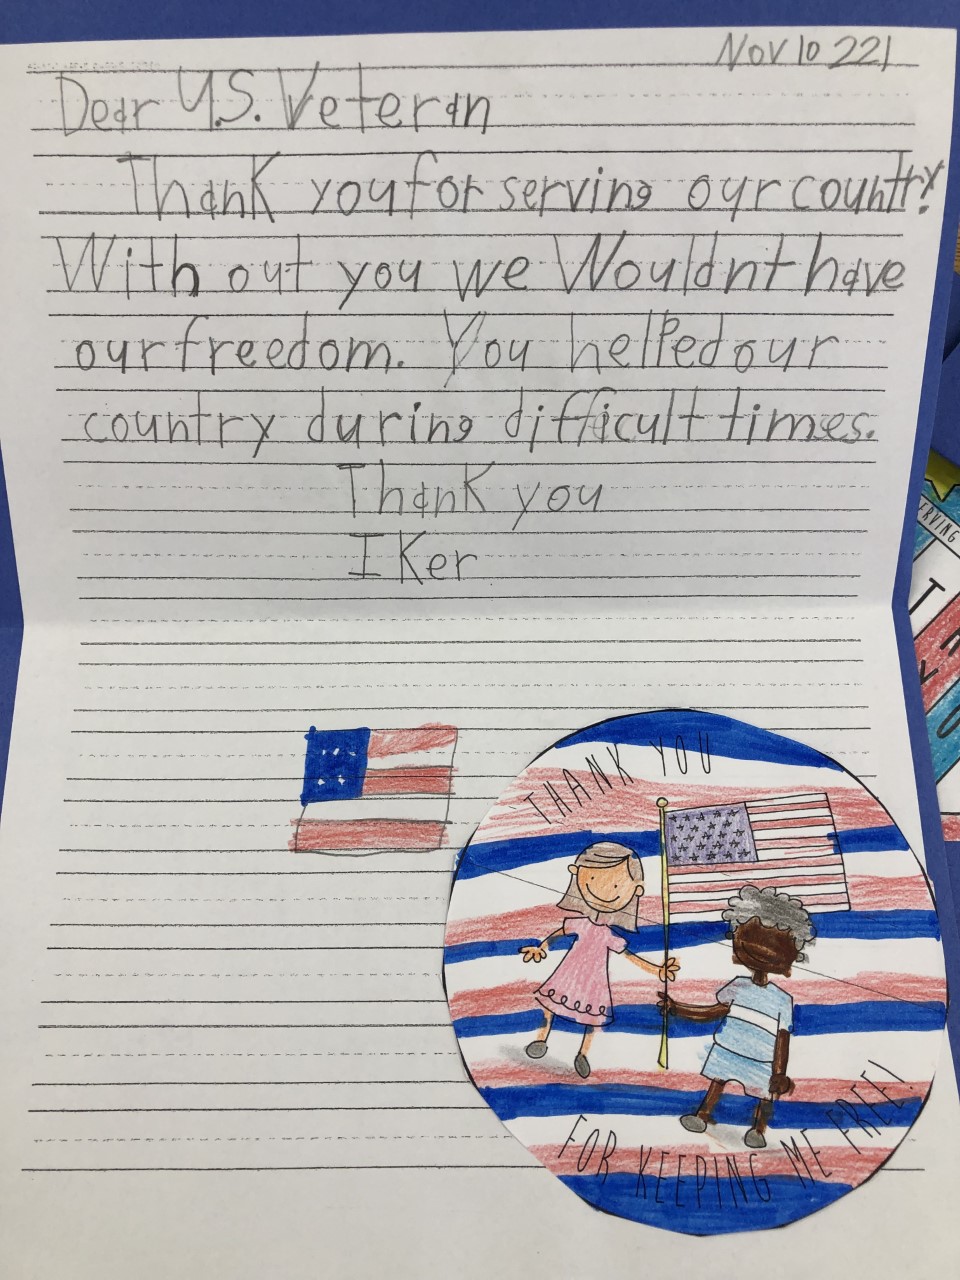 Nov 10 221
Dear U.S. Veteran
Thank you for serving our country!
With out you we Wouldnt have
our freedom. You helped our
country during difficult times.
Thank you
Iker
THANK YOU
FOR KEEPING ME FREE!
ERVING
T